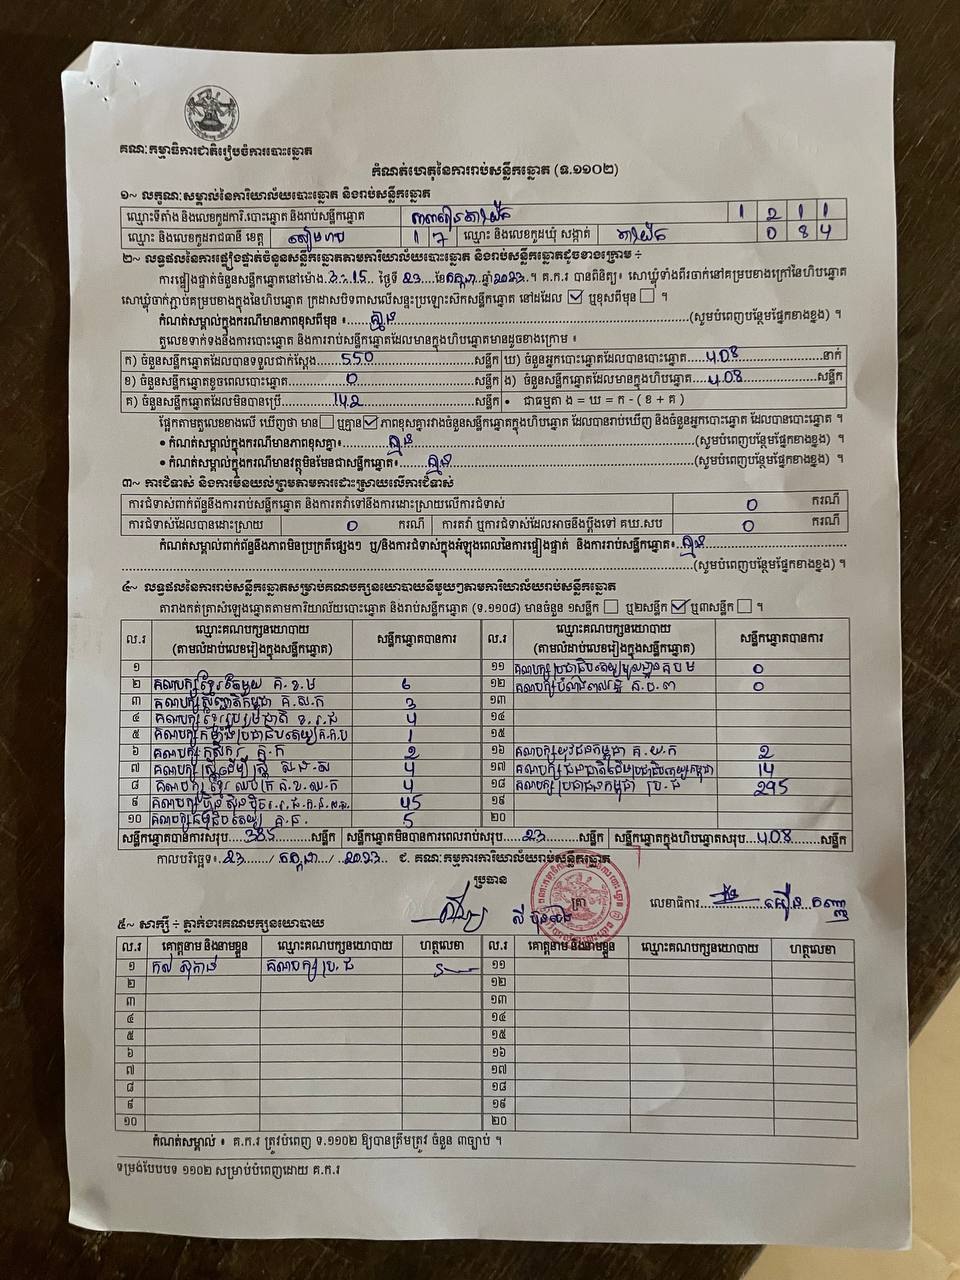 គណៈកម្មាធិការជាតិរៀបចំការបោះឆ្នោត
កំណត់ហេតុនៃការរាប់សន្លឹកឆ្នោត (ទ.១១០២)
១~ លក្ខណៈសម្គាល់នៃការិយាល័យបោះឆ្នោត និងរាប់សន្លឹកឆ្នោត
ឈ្មោះទីតាំង និងលេខកូដការិ.បោះឆ្នោត និងរាប់សន្លឹកឆ្នោត 1 2 1 1
ឈ្មោះ និងលេខកូដរាជធានី ខេត្ត សៀមរាប 1 7 ឈ្មោះ និងលេខកូដឃុំ សង្កាត់ 0 8 4
២~ លទ្ធផលនៃការផ្ទៀងផ្ទាត់ចំនួនសន្លឹកឆ្នោតតាមការិយាល័យបោះឆ្នោត និងរាប់សន្លឹកឆ្នោតដូចខាងក្រោម ÷
ការផ្ទៀងផ្ទាត់ចំនួនសន្លឹកឆ្នោតនៅម៉ោង 3:15 ថ្ងៃទី 23 ខែកក្កដា ឆ្នាំ 2023 ។ គ.ក.រ បានពិនិត្យ៖ សោឃ្លុំទាំងពីរចាក់នៅគម្របខាងក្រៅនៃហិបឆ្នោត
សោឃ្លុំចាក់ភ្ជាប់គម្របខាងក្នុងនៃហិបឆ្នោត ក្រដាសបិទពាសលើសន្ទះប្រឡោះសិកសន្លឹកឆ្នោត នៅដដែល ☑ ឬខុសពីមុន ☐ ។
កំណត់សម្គាល់ក្នុងករណីមានភាពខុសពីមុន ៖ គ្មាន (សូមបំពេញបន្ថែមផ្នែកខាងខ្នង) ។
តួលេខទាក់ទងនឹងការបោះឆ្នោត និងការរាប់សន្លឹកឆ្នោតដែលមានក្នុងហិបឆ្នោតមានដូចខាងក្រោម ៖
ក) ចំនួនសន្លឹកឆ្នោតដែលបានទទួលជាក់ស្តែង 550 សន្លឹក ឃ) ចំនួនអ្នកបោះឆ្នោតដែលបានបោះឆ្នោត 408 នាក់
ខ) ចំនួនសន្លឹកឆ្នោតខូចពេលបោះឆ្នោត 0 សន្លឹក ង) ចំនួនសន្លឹកឆ្នោតដែលមានក្នុងហិបឆ្នោត 408 សន្លឹក
គ) ចំនួនសន្លឹកឆ្នោតដែលមិនបានប្រើ 142 សន្លឹក • ជាធម្មតា ង = ឃ = ក - ( ខ + គ )
ផ្អែកតាមតួលេខខាងលើ ឃើញថា មាន ☐ ឬគ្មាន ☑ ភាពខុសគ្នារវាងចំនួនសន្លឹកឆ្នោតក្នុងហិបឆ្នោត ដែលបានរាប់ឃើញ និងចំនួនអ្នកបោះឆ្នោត ដែលបានបោះឆ្នោត ។
• កំណត់សម្គាល់ក្នុងករណីមានភាពខុសគ្នា៖ គ្មាន (សូមបំពេញបន្ថែមផ្នែកខាងខ្នង) ។
• កំណត់សម្គាល់ក្នុងករណីមានវត្ថុមិនមែនជាសន្លឹកឆ្នោត៖ គ្មាន (សូមបំពេញបន្ថែមផ្នែកខាងខ្នង) ។
៣~ ការជំទាស់ និងការមិនយល់ព្រមតាមការដោះស្រាយលើការជំទាស់
ការជំទាស់ពាក់ព័ន្ធនឹងការរាប់សន្លឹកឆ្នោត និងការតវ៉ាទៅនឹងការដោះស្រាយលើការជំទាស់ 0 ករណី
ការជំទាស់ដែលបានដោះស្រាយ 0 ករណី ការតវ៉ា ឬការជំទាស់ដែលអាចនឹងប្តឹងទៅ គឃ.សប 0 ករណី
កំណត់សម្គាល់ពាក់ព័ន្ធនឹងភាពមិនប្រក្រតីផ្សេងៗ ឬ/និងការជំទាស់ក្នុងអំឡុងពេលនៃការផ្ទៀងផ្ទាត់ និងការរាប់សន្លឹកឆ្នោត៖ គ្មាន
(សូមបំពេញបន្ថែមផ្នែកខាងខ្នង) ។
៤~ លទ្ធផលនៃការរាប់សន្លឹកឆ្នោតសម្រាប់គណបក្សនយោបាយនីមួយៗតាមការិយាល័យរាប់សន្លឹកឆ្នោត
តារាងកត់ត្រាសំឡេងឆ្នោតតាមការិយាល័យបោះឆ្នោត និងរាប់សន្លឹកឆ្នោត (ទ.១១០៨) មានចំនួន ១សន្លឹក ☐ ឬ២សន្លឹក ☑ ឬ៣សន្លឹក ☐ ។
ល.រ ឈ្មោះគណបក្សនយោបាយ (តាមលំដាប់លេខរៀងក្នុងសន្លឹកឆ្នោត) សន្លឹកឆ្នោតបានការ ល.រ ឈ្មោះគណបក្សនយោបាយ (តាមលំដាប់លេខរៀងក្នុងសន្លឹកឆ្នោត) សន្លឹកឆ្នោតបានការ
១ ១១ គណបក្សប្រជាធិបតេយ្យមូលដ្ឋាន គ ប ម 0
២ គណបក្សខ្មែរតែមួយ គ.ខ.ម 6 ១២ 0
៣ គណបក្សសញ្ជាតិកម្ពុជា គ.ស.ក 3 ១៣
៤ គណបក្សខ្មែររួបរួមជាតិ ខ.រ.ជ 4 ១៤
៥ គណបក្សកម្លាំងប្រជាធិបតេយ្យ 1 ១៥
៦ គណបក្សកសិករ គ.ក 2 ១៦ គណបក្សយុវជនកម្ពុជា គ.យ.ក 2
៧ គណបក្សស្ត្រីដើម្បីស្ត្រី 4 ១៧ គណបក្សជនជាតិដើមប្រជាធិបតេយ្យកម្ពុជា 14
៨ គណបក្សខ្មែរឈប់ក្រ 4 ១៨ គណបក្សប្រជាជនកម្ពុជា ប្រ.ជ 295
៩ គណបក្សហ៊្វុនស៊ិនប៉ិច 45 ១៩
១០ គណបក្សធម្មាធិបតេយ្យ គ.ធ. 5 ២០
សន្លឹកឆ្នោតបានការសរុប 385 សន្លឹក សន្លឹកឆ្នោតមិនបានការពេលរាប់សរុប 23 សន្លឹក សន្លឹកឆ្នោតក្នុងហិបឆ្នោតសរុប 408 សន្លឹក
កាលបរិច្ឆេទ៖ 23 / កក្កដា / 2023 ជ. គណៈកម្មការការិយាល័យរាប់សន្លឹកឆ្នោត
ប្រធាន
ត្រា
លេខាធិការ
៥~ សាក្សី ÷ ភ្នាក់ងារគណបក្សនយោបាយ
ល.រ គោត្តនាម និងនាមខ្លួន ឈ្មោះគណបក្សនយោបាយ ហត្ថលេខា ល.រ គោត្តនាម និងនាមខ្លួន ឈ្មោះគណបក្សនយោបាយ ហត្ថលេខា
១ គណបក្ស ប្រ.ជ ១១
២ ១២
៣ ១៣
៤ ១៤
៥ ១៥
៦ ១៦
៧ ១៧
៨ ១៨
៩ ១៩
១០ ២០
កំណត់សម្គាល់ ៖ គ.ក.រ ត្រូវបំពេញ ទ.១១០២ ឱ្យបានត្រឹមត្រូវ ចំនួន ៣ច្បាប់ ។
ទម្រង់បែបបទ ១១០២ សម្រាប់បំពេញដោយ គ.ក.រ